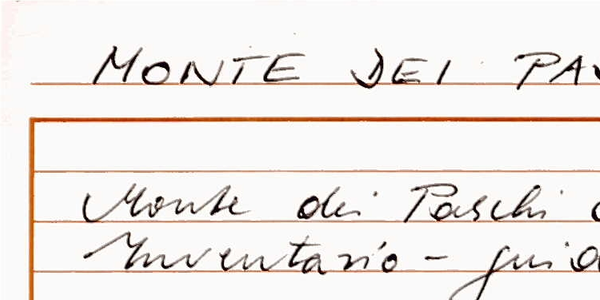 MONTE DEI PA
Monte dei Paschi
Inventario -